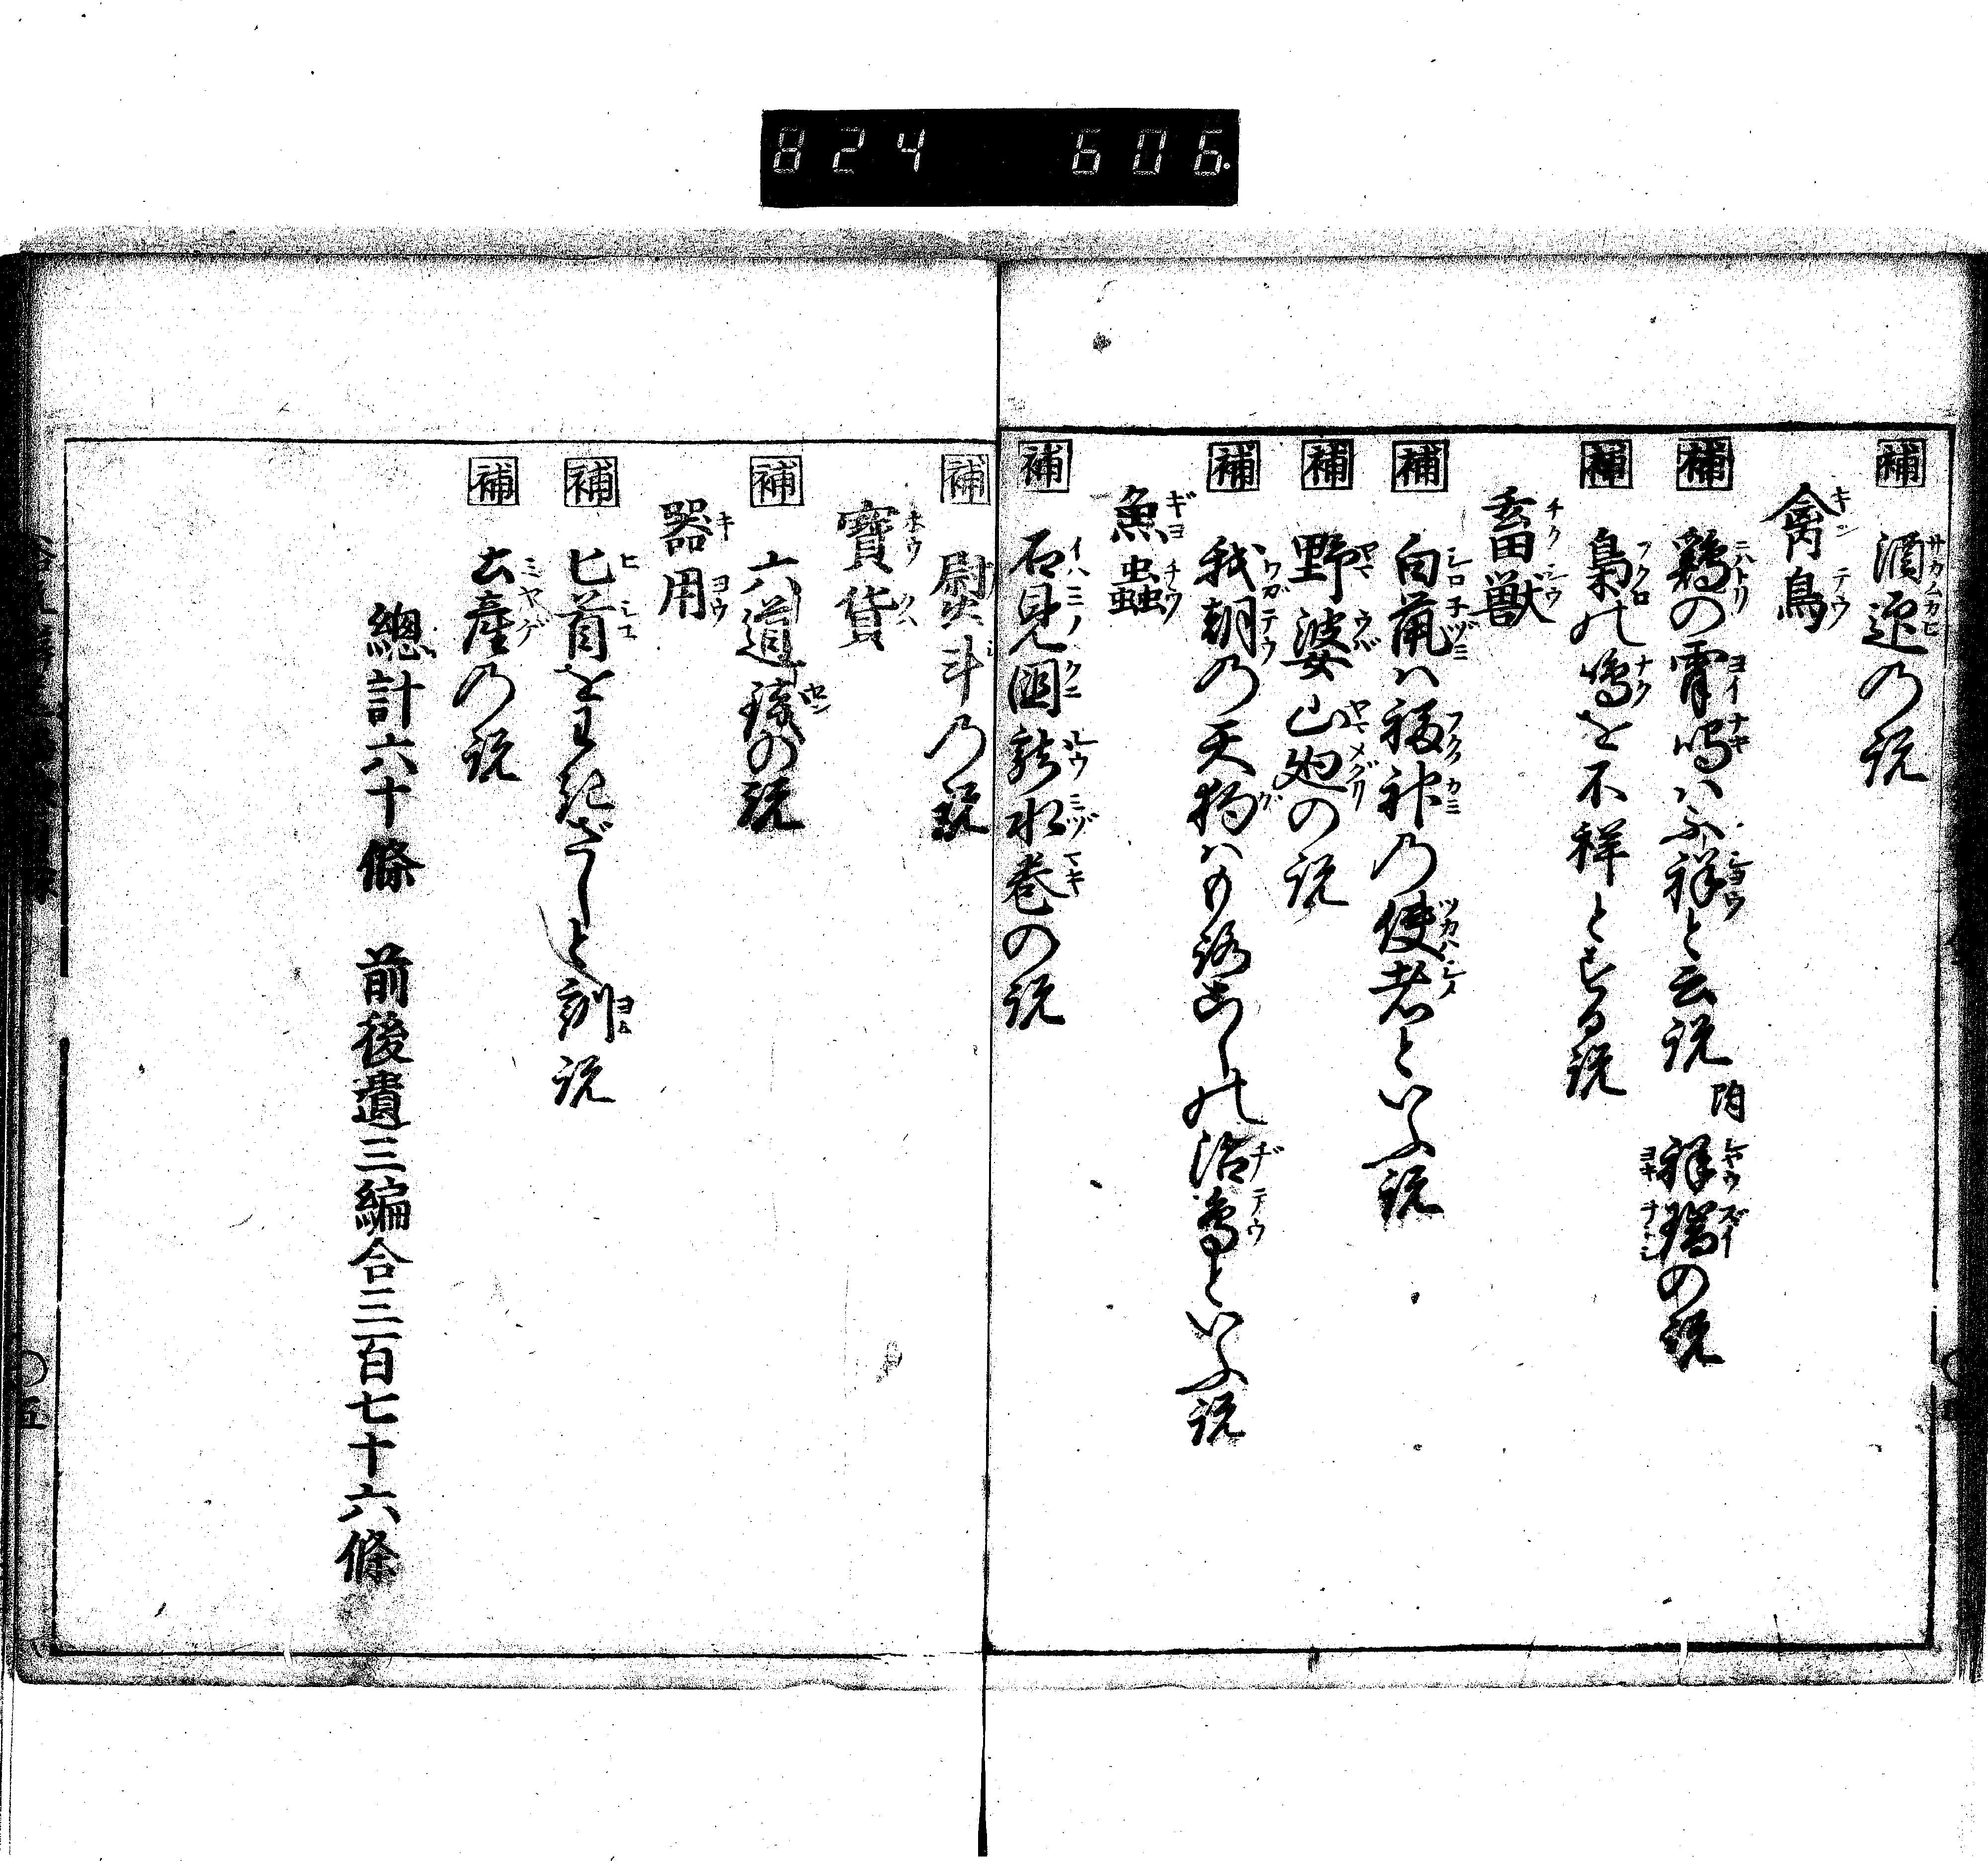 824 606
補 酒迎の説
禽鳥
補 鶏の宵鳴ハ不祥と云説 附 祥瑞の説
補 梟の鳴を不祥とする説
畜獣
補 白鼠ハ福神の使者といふ説
補 野婆山廻の説
補 我朝の天狗ハもろこしの治鳥といふ説
魚蟲
補 石見国龍水巻の説
補 熨斗の説
寶貨
補 六道銭の説
器用
補 匕首をわきざしと訓説
補 土産の説
總計六十條 前後遺三編合三百七十六條
五